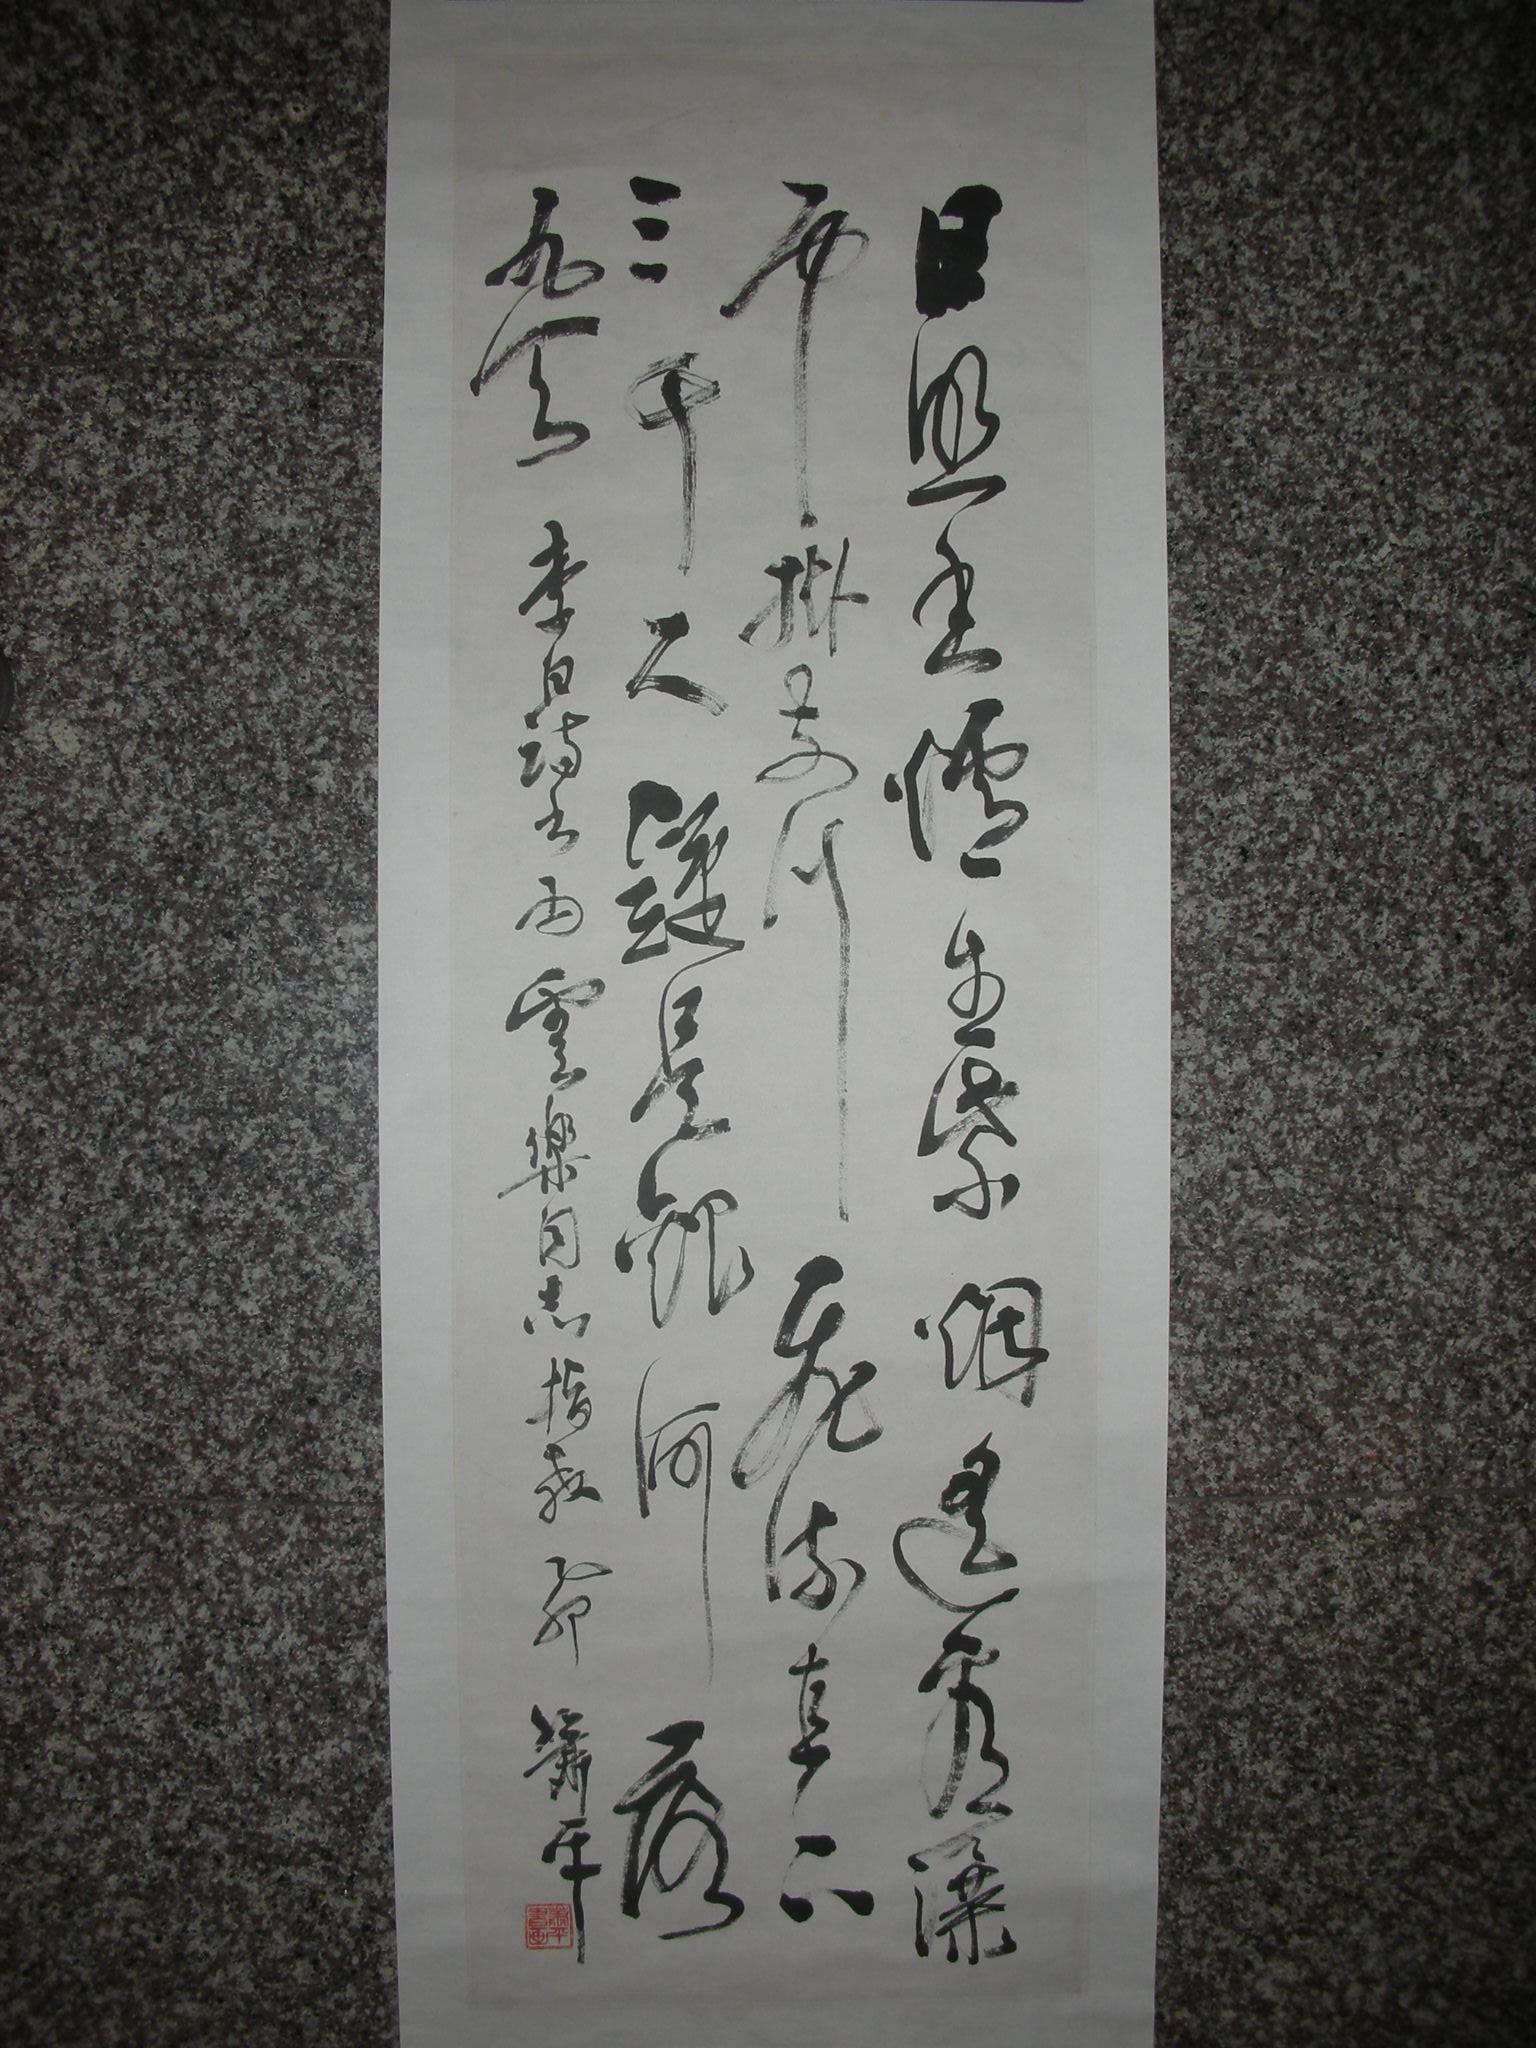 日照香爐生紫烟遙看瀑
布掛前川飛流直下
三千尺疑是銀河落
九天 李白詩書爲雲樂同志指教 乙卯 蕭平